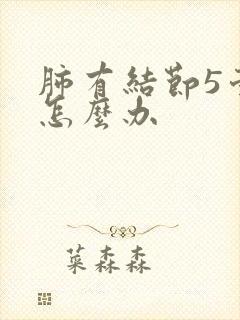 肺有結節5
怎麼办
菜森森